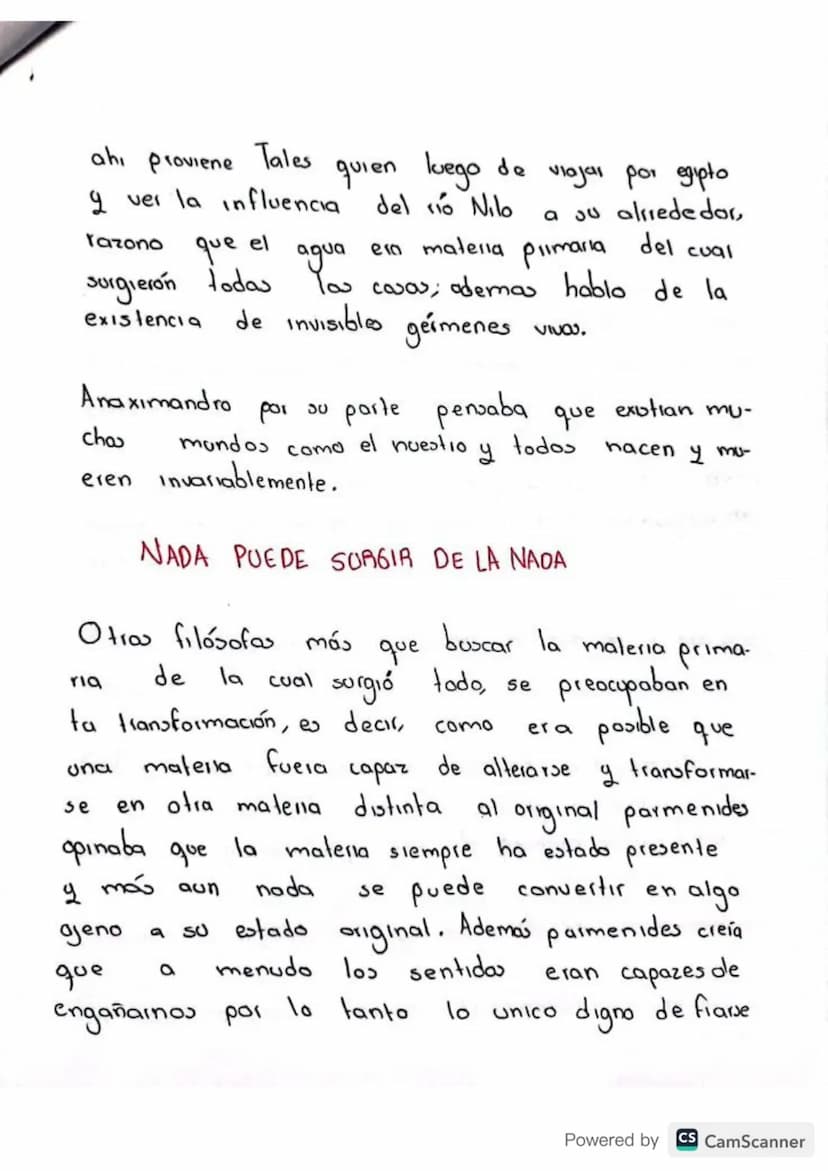 ahi proviene Tales quien luego de viajar por egipto
y ver la influencia del río Nilo a su alrededor,
razono que el agua era materia primaria del cual
surgierón todas las cosas; ademas hablo de la
existencia de invisibles gérmenes vivos.
Anaximandro por su parte pensaba que existian mu-
chos mundos como el nuestro y todos nacen y mu-
eren invariablemente.
NADA PUEDE SURGIR DE LA NADA
Otros filósofos más que buscar la materia prima-
ria de la cual surgió todo, se preocupaban en
ta transformación, es decir, como era posible que
una materia fuera capaz de alterarse y transformar-
se en otra materia distinta al original parmenides
opinaba que la materia siempre ha estado presente
y más aun nada se puede convertir en algo
ajeno a su estado original. Además parmenides creía
que a menudo los sentidos eran capazes de
engañarnos por lo tanto lo unico digno de fiarse
Powered by CS CamScanner